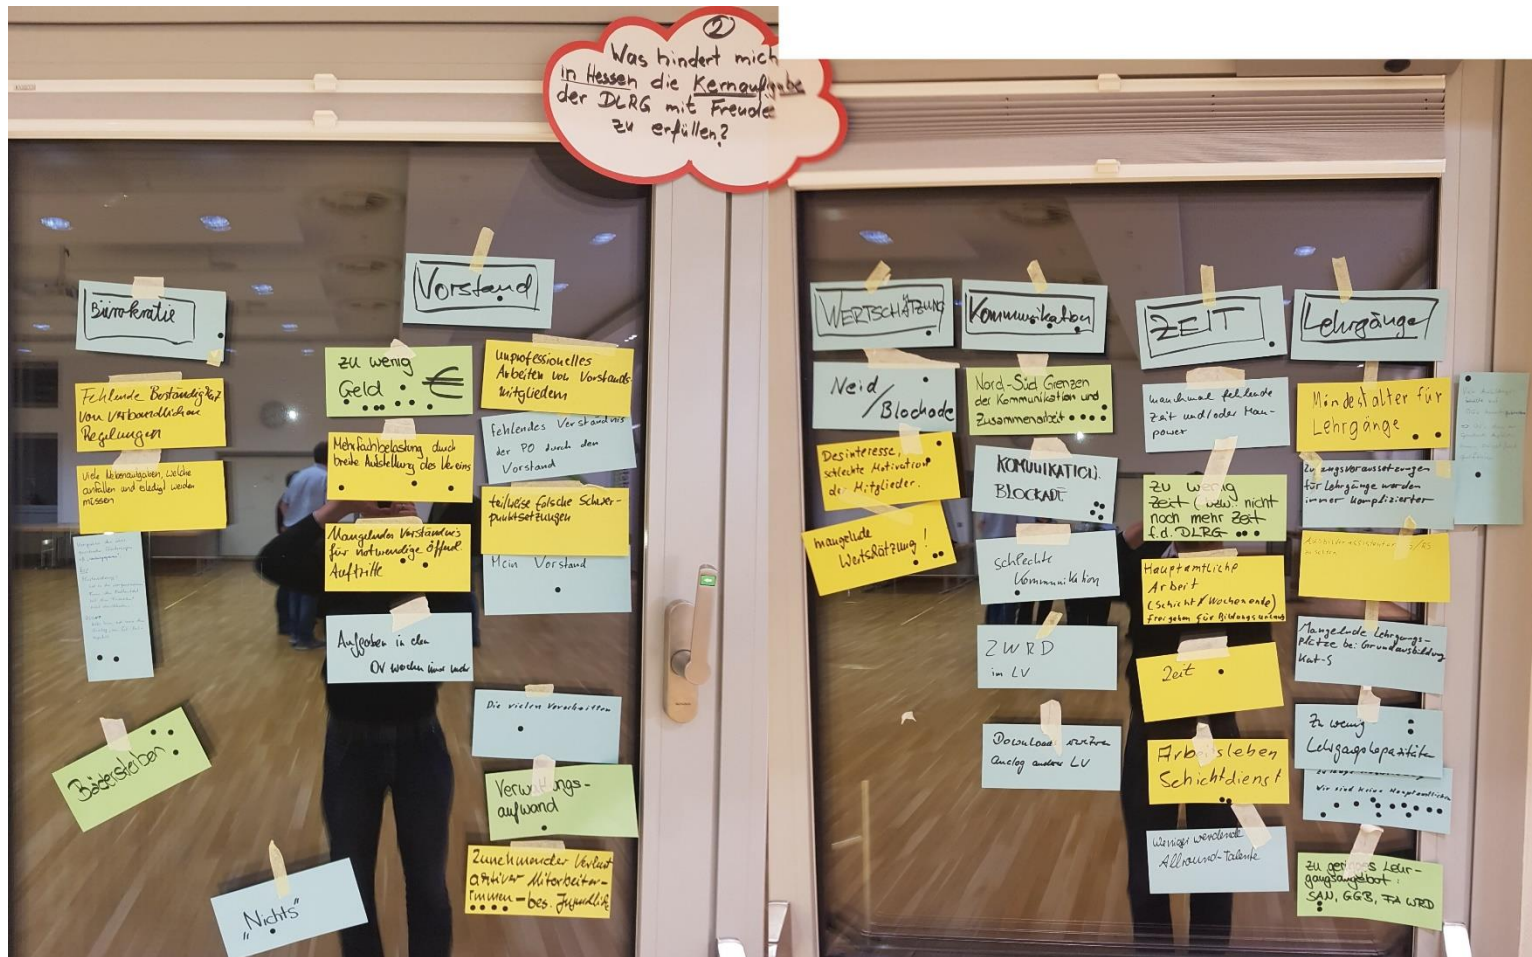 2
Was hindert mich
in Hessen die Kernaufgabe
der DLRG mit Freude
zu erfüllen?
Bürokratie
Fehlende Beständigkeit
von verbandlichen
Regelungen
Viele Nebenaufgaben, welche
anfallen und erledigt werden
müssen
Bädersterben
"Nichts"
Vorstand
zu wenig
Geld €
Mehrfachbelastung durch
breite Aufstellung des Vereins
Mangelndes Verständnis
für notwendige öffentl
Auftritte
Aufgaben in den
OV werden immer mehr
Unprofessionelles
Arbeiten von Vorstands-
mitgliedern
fehlendes Verständnis
der PO durch den
Vorstand
teilweise falsche Schwer-
punktsetzungen
Mein Vorstand
Die vielen Vorschriften
Verwaltungs-
aufwand
Zunehmender Verlust
aktiver Mitarbeiter-
innen - bes. Jugendliche
WERTSCHÄTZUNG
Neid
/Blockade
Desinteresse,
schlechte Motivation
der Mitglieder.
mangelnde
Wertshätzung!
Kommunikation
Nord-Süd Grenzen
der Kommunikation und
Zusammenarbeit
KOMUNIKATION.
BLOCKADE
schlechte
Kommunikation
ZWRD
im LV
Download
analog andere LV
ZEIT
manchmal fehlende
Zeit und/oder Man-
power
Zu wenig
Zeit (bzw. nicht
noch mehr Zeit
f.d. DLRG
Hauptamtliche
Arbeit
(Schicht/Wochenende)
freigeben für Bildungsurlaub
Zeit
Arbeitsleben
Schichtdienst
weniger werdende
Allround-Talente
Lehrgänge
Mindestalter für
Lehrgänge
Zugangsvoraussetzungen
für Lehrgänge werden
immer komplizierter
Mangelnde Lehrgangs-
plätze bei Grundausbildung
Kat-S
Zu wenig
Lehrgangskapazitäten
Wir sind keine Hauptamtlichen
zu geringes Lehr-
gangsangebot:
SAN, GGB, FA WRD